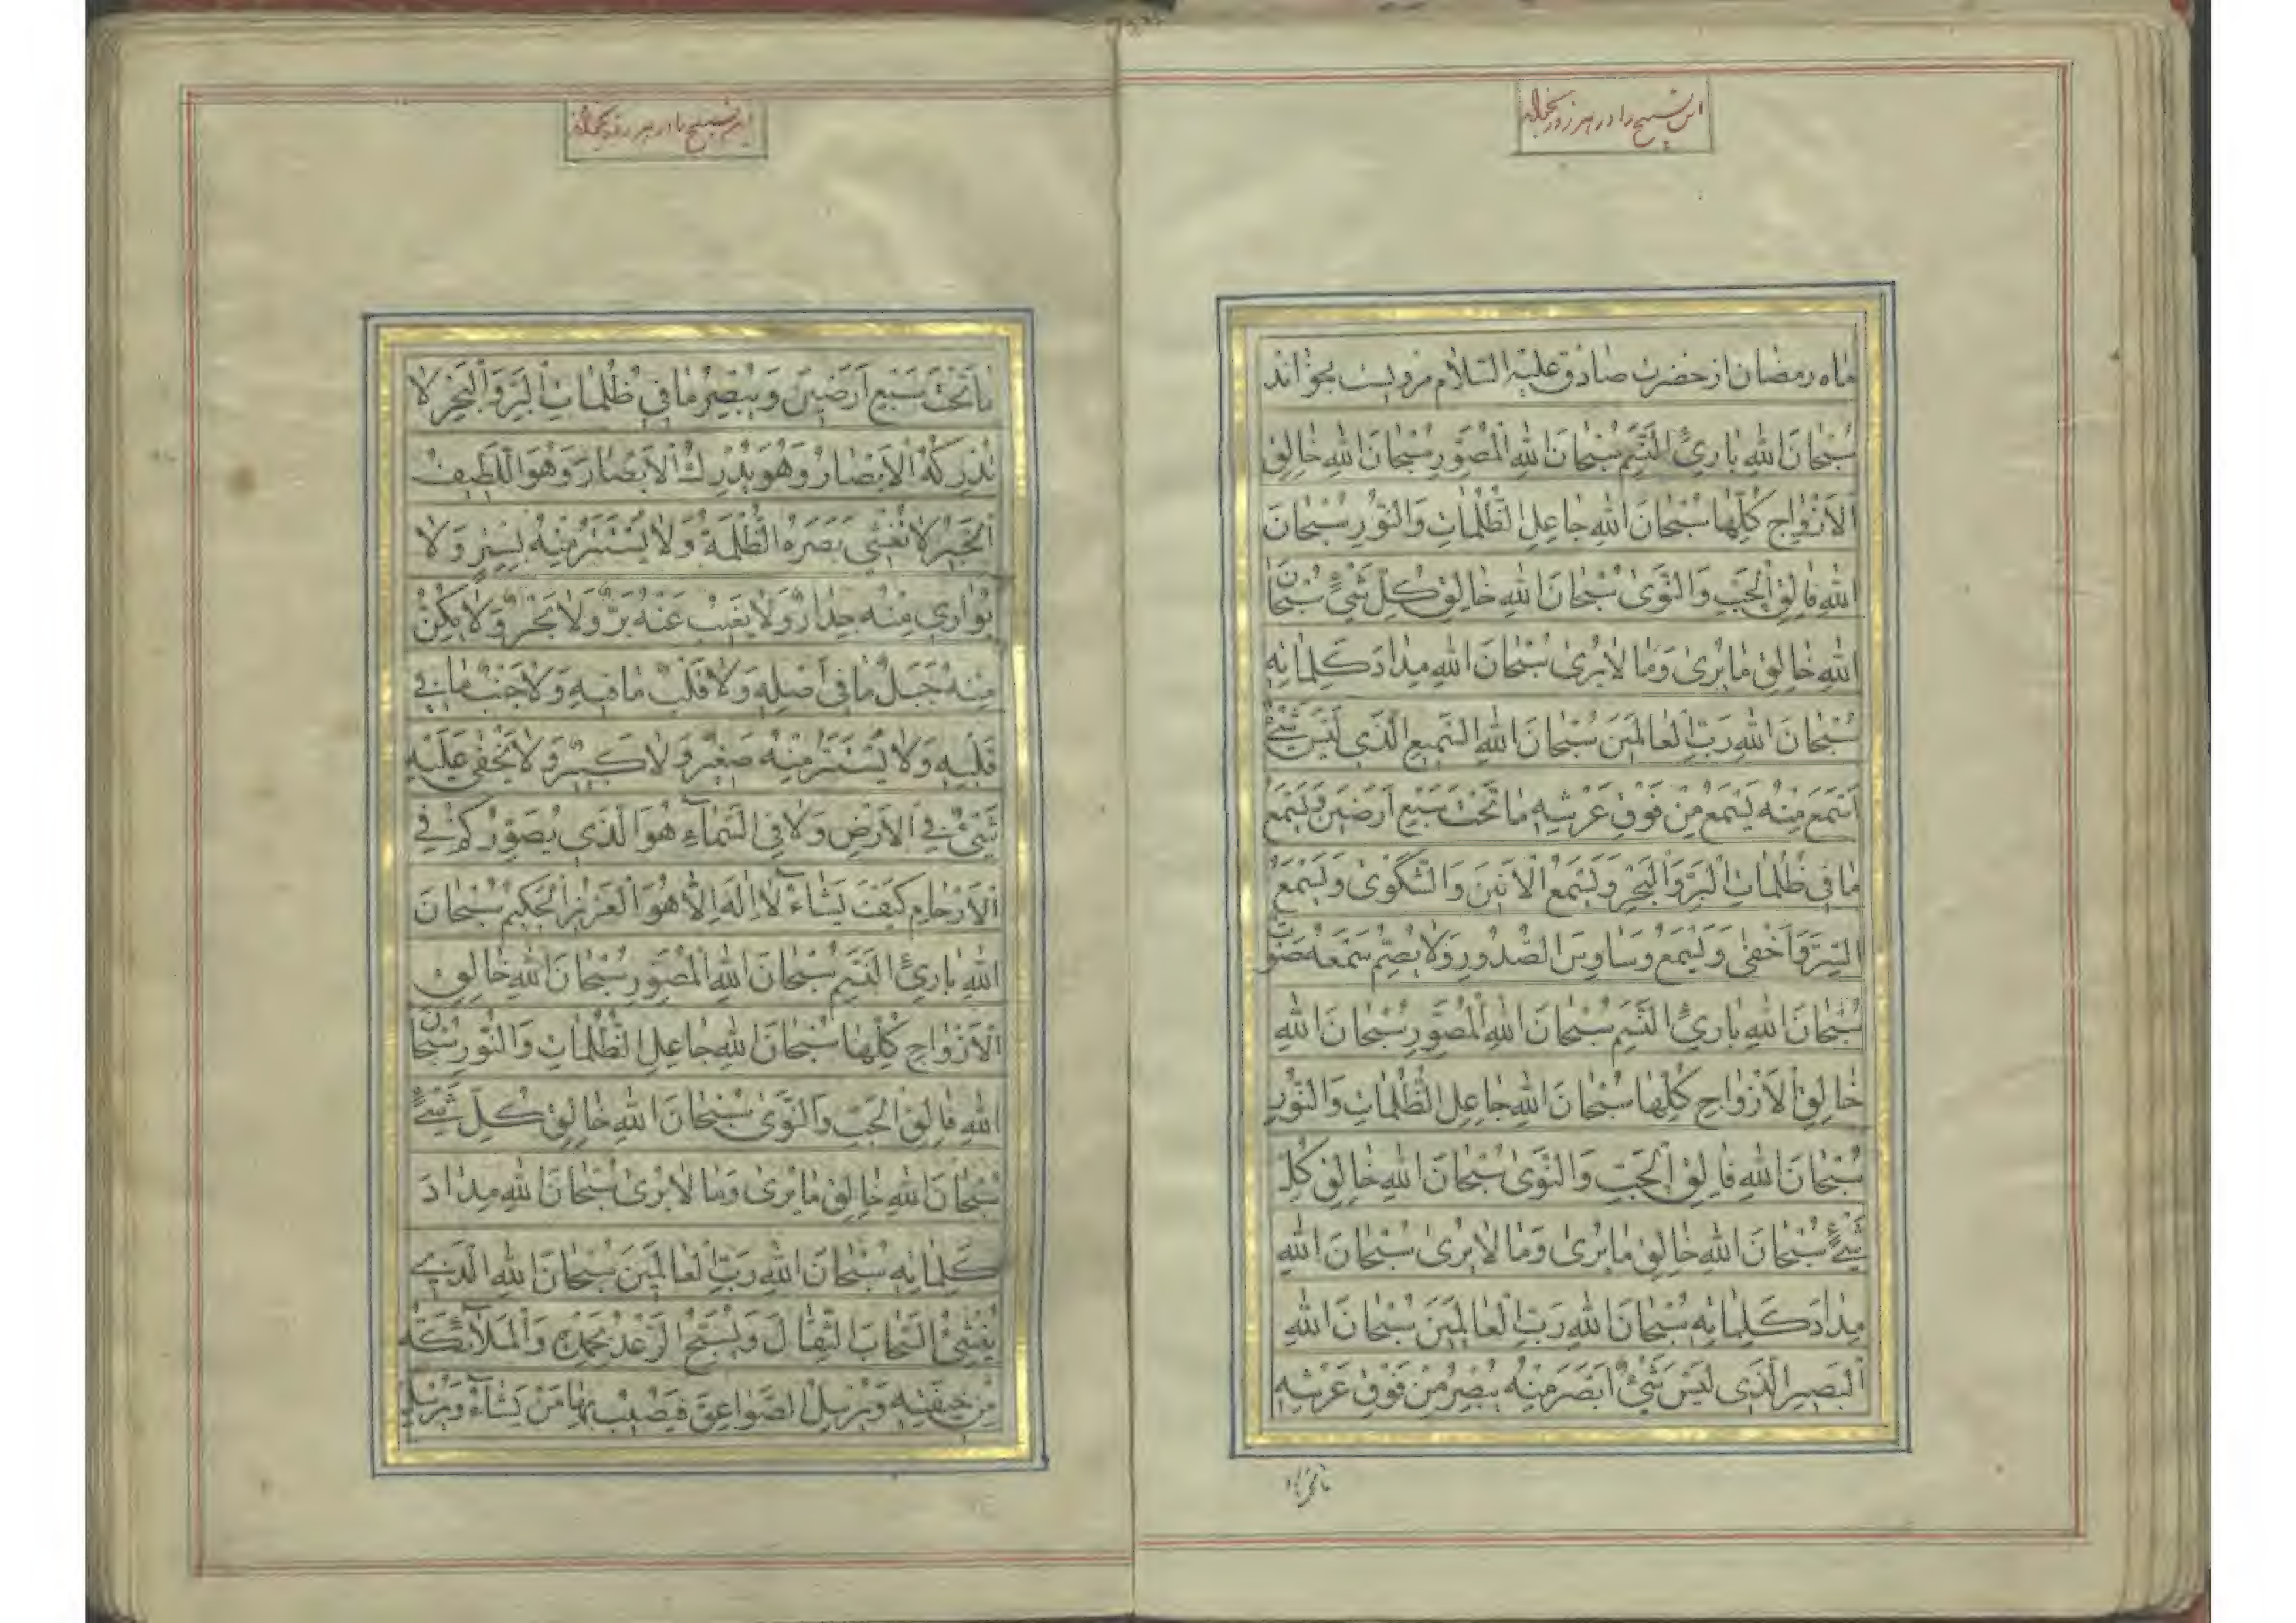 این تسبیح را در هر روز بخواند
ماه رمضان از حضرت صادق علیه السلام مرویست بخواند
سُبْحانَ اللهِ بارِئِ النَّسَمِ سُبْحانَ اللهِ الْمُصَوِّرِ سُبْحانَ اللهِ خالِقِ
الْأَزْواجِ كُلِّها سُبْحانَ اللهِ جاعِلِ الظُّلُماتِ وَالنُّورِ سُبْحانَ
اللهِ فالِقِ الْحَبِّ وَالنَّوىٰ سُبْحانَ اللهِ خالِقِ كُلِّ شَيْءٍ سُبْحانَ
اللهِ خالِقِ ما يُرىٰ وَما لا يُرىٰ سُبْحانَ اللهِ مِدادَ كَلِماتِهِ
سُبْحانَ اللهِ رَبِّ الْعالَمينَ سُبْحانَ اللهِ السَّميعِ الَّذي لَيْسَ شَيْءٌ
اَسْمَعَ مِنْهُ يَسْمَعُ مِنْ فَوْقِ عَرْشِهِ ما تَحْتَ سَبْعِ اَرَضينَ وَيَسْمَعُ
ما في ظُلُماتِ الْبَرِّ وَالْبَحْرِ وَيَسْمَعُ الْاَنينَ وَالشَّكْوىٰ وَيَسْمَعُ
السِّرَّ وَاَخْفىٰ وَيَسْمَعُ وَساوِسَ الصُّدُورِ وَلا يُصِمُّ سَمْعَهُ صَوْتٌ
سُبْحانَ اللهِ بارِئِ النَّسَمِ سُبْحانَ اللهِ الْمُصَوِّرِ سُبْحانَ اللهِ
خالِقِ الْاَزْواجِ كُلِّها سُبْحانَ اللهِ جاعِلِ الظُّلُماتِ وَالنُّورِ
سُبْحانَ اللهِ فالِقِ الْحَبِّ وَالنَّوىٰ سُبْحانَ اللهِ خالِقِ كُلِّ
شَيْءٍ سُبْحانَ اللهِ خالِقِ ما يُرىٰ وَما لا يُرىٰ سُبْحانَ اللهِ
مِدادَ كَلِماتِهِ سُبْحانَ اللهِ رَبِّ الْعالَمينَ سُبْحانَ اللهِ
الْبَصيرِ الَّذي لَيْسَ شَيْءٌ اَبْصَرَ مِنْهُ يُبْصِرُ مِنْ فَوْقِ عَرْشِهِ
این تسبیح را در هر روز بخواند
ما تَحْتَ سَبْعِ اَرَضينَ وَيُبْصِرُ ما في ظُلُماتِ الْبَرِّ وَالْبَحْرِ لا
تُدْرِكُهُ الْاَبْصارُ وَهُوَ يُدْرِكُ الْاَبْصارَ وَهُوَ اللَّطيفُ
الْخَبيرُ لا تُغْشي بَصَرَهُ الظُّلْمَةُ وَلا يُسْتَتَرُ مِنْهُ بِسِتْرٍ وَلا
يُواري مِنْهُ جِدارٌ وَلا يَغيبُ عَنْهُ بَرٌّ وَلا بَحْرٌ وَلا يَكِنُّ
مِنْهُ جَبَلٌ ما في اَصْلِهِ وَلا قَلْبٌ ما فيهِ وَلا جَنْبٌ ما في
قَلْبِهِ وَلا يَسْتَتِرُ مِنْهُ صَغيرٌ وَلا كَبيرٌ وَلا يَخْفىٰ عَلَيْهِ
شَيْءٌ فِي الْاَرْضِ وَلا فِي السَّماءِ هُوَ الَّذي يُصَوِّرُكُمْ فِي
الْاَرْحامِ كَيْفَ يَشاءُ لا اِلٰهَ اِلّا هُوَ الْعَزيزُ الْحَكيمُ سُبْحانَ
اللهِ بارِئِ النَّسَمِ سُبْحانَ اللهِ الْمُصَوِّرِ سُبْحانَ اللهِ خالِقِ
الْاَزْواجِ كُلِّها سُبْحانَ اللهِ جاعِلِ الظُّلُماتِ وَالنُّورِ سُبْحانَ
اللهِ فالِقِ الْحَبِّ وَالنَّوىٰ سُبْحانَ اللهِ خالِقِ كُلِّ شَيْءٍ
سُبْحانَ اللهِ خالِقِ ما يُرىٰ وَما لا يُرىٰ سُبْحانَ اللهِ مِدادَ
كَلِماتِهِ سُبْحانَ اللهِ رَبِّ الْعالَمينَ سُبْحانَ اللهِ الَّذي
يُنْشِئُ السَّحابَ الثِّقالَ وَيُسَبِّحُ الرَّعْدُ بِحَمْدِهِ وَالْمَلآئِكَةُ
مِنْ خيفَتِهِ وَيُرْسِلُ الصَّواعِقَ فَيُصيبُ بِها مَنْ يَشآءُ وَيُرْسِلُ